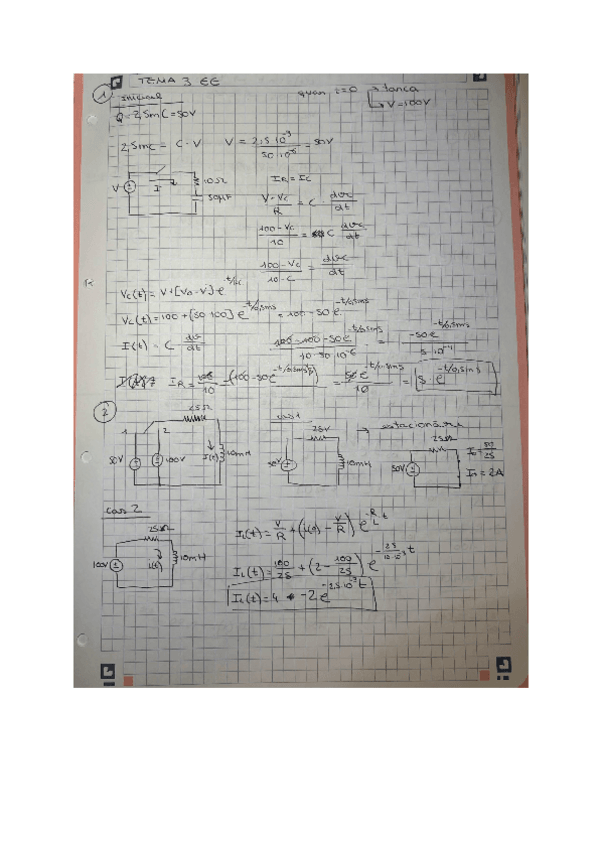 TEMA 3 EE
1 Inicional
quan t=0 → tanca
V=100V
Q=2,5mC=50V
2,5mC = C·V V = 2,5·10^-3 / 50·10^-6 = 50V
V I 10Ω 50μF
IR = IC
V-Vc / R = C · dvc/dt
100-Vc / 10 = C dvc/dt
100-Vc / 10·C = dvc/dt
Vc(t) = V+[V0-V]e^-t/RC
Vc(t) = 100+[50-100]e^-t/0,5ms = 100-50e^-t/0,5ms
I(t) = C · dv/dt
100-100-50e^-t/0,5ms / 10·50·10^-6 = -50e^-t/0,5ms / 5·10^-4
IR = 100 / 10 = -(100-50e^-t/0,5ms) = 50e^-t/0,5ms / 10 = 5·e^-t/0,5ms
2
1 2 25Ω 50V 100V I(t) 10mH
cas 1
25Ω 50V 10mH
→ estacionari
25Ω 50V
I0 = 50/25
I0 = 2A
cas 2
25Ω 100V i(t) 10mH
IL(t) = V/R + (i(0) - V/R) e^-R/L t
IL(t) = 100/25 + (2 - 100/25) e^-25/10·10^-3 t
IL(t) = 4 -2e^-2,5·10^3 t